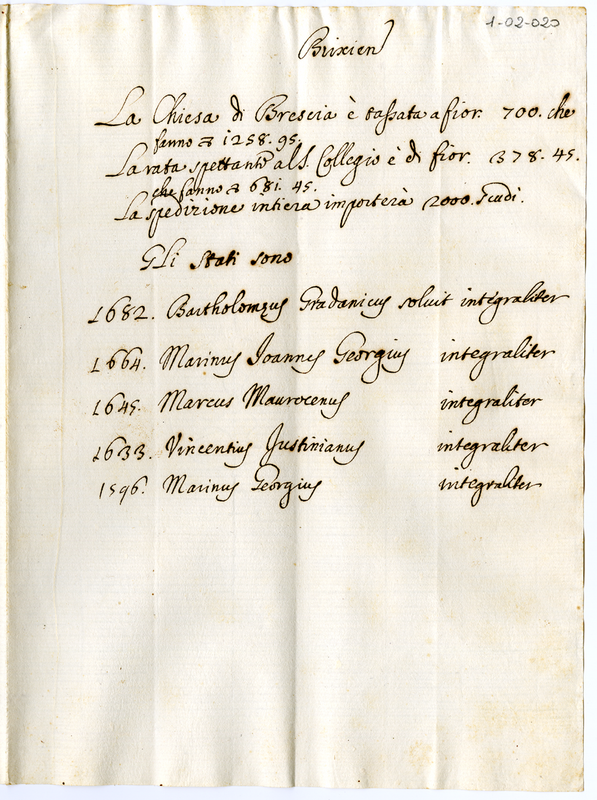 1-02-020
Brixien
La Chiesa di Brescia è tassata a fior. 700. che
fanno ∇ 1258. 95.
La rata spettante al S. Collegio è di fior. 378. 45.
che fanno ∇ 681. 45.
La spedizione intiera importerà 2000. Scudi.
Gli Stati sono
1682. Bartholomæus Gradanicus soluit integraliter
1664. Marinus Joannes Georgius integraliter
1645. Marcus Maurocenus integraliter
1633. Vincentius Justinianus integraliter
1596. Marinus Georgius integraliter